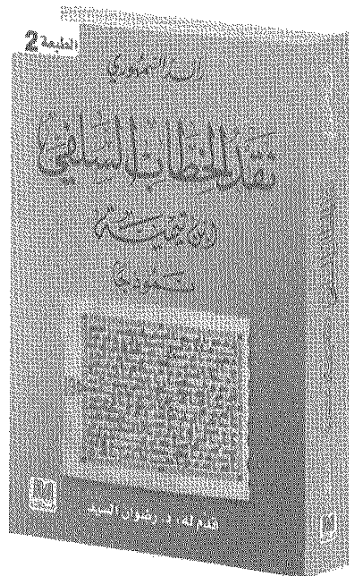 الطبعة 2
رائد السمهوري
نقد الخطاب السلفي
ابن تيمية
نموذجاً
قدم له: د. رضوان السيد